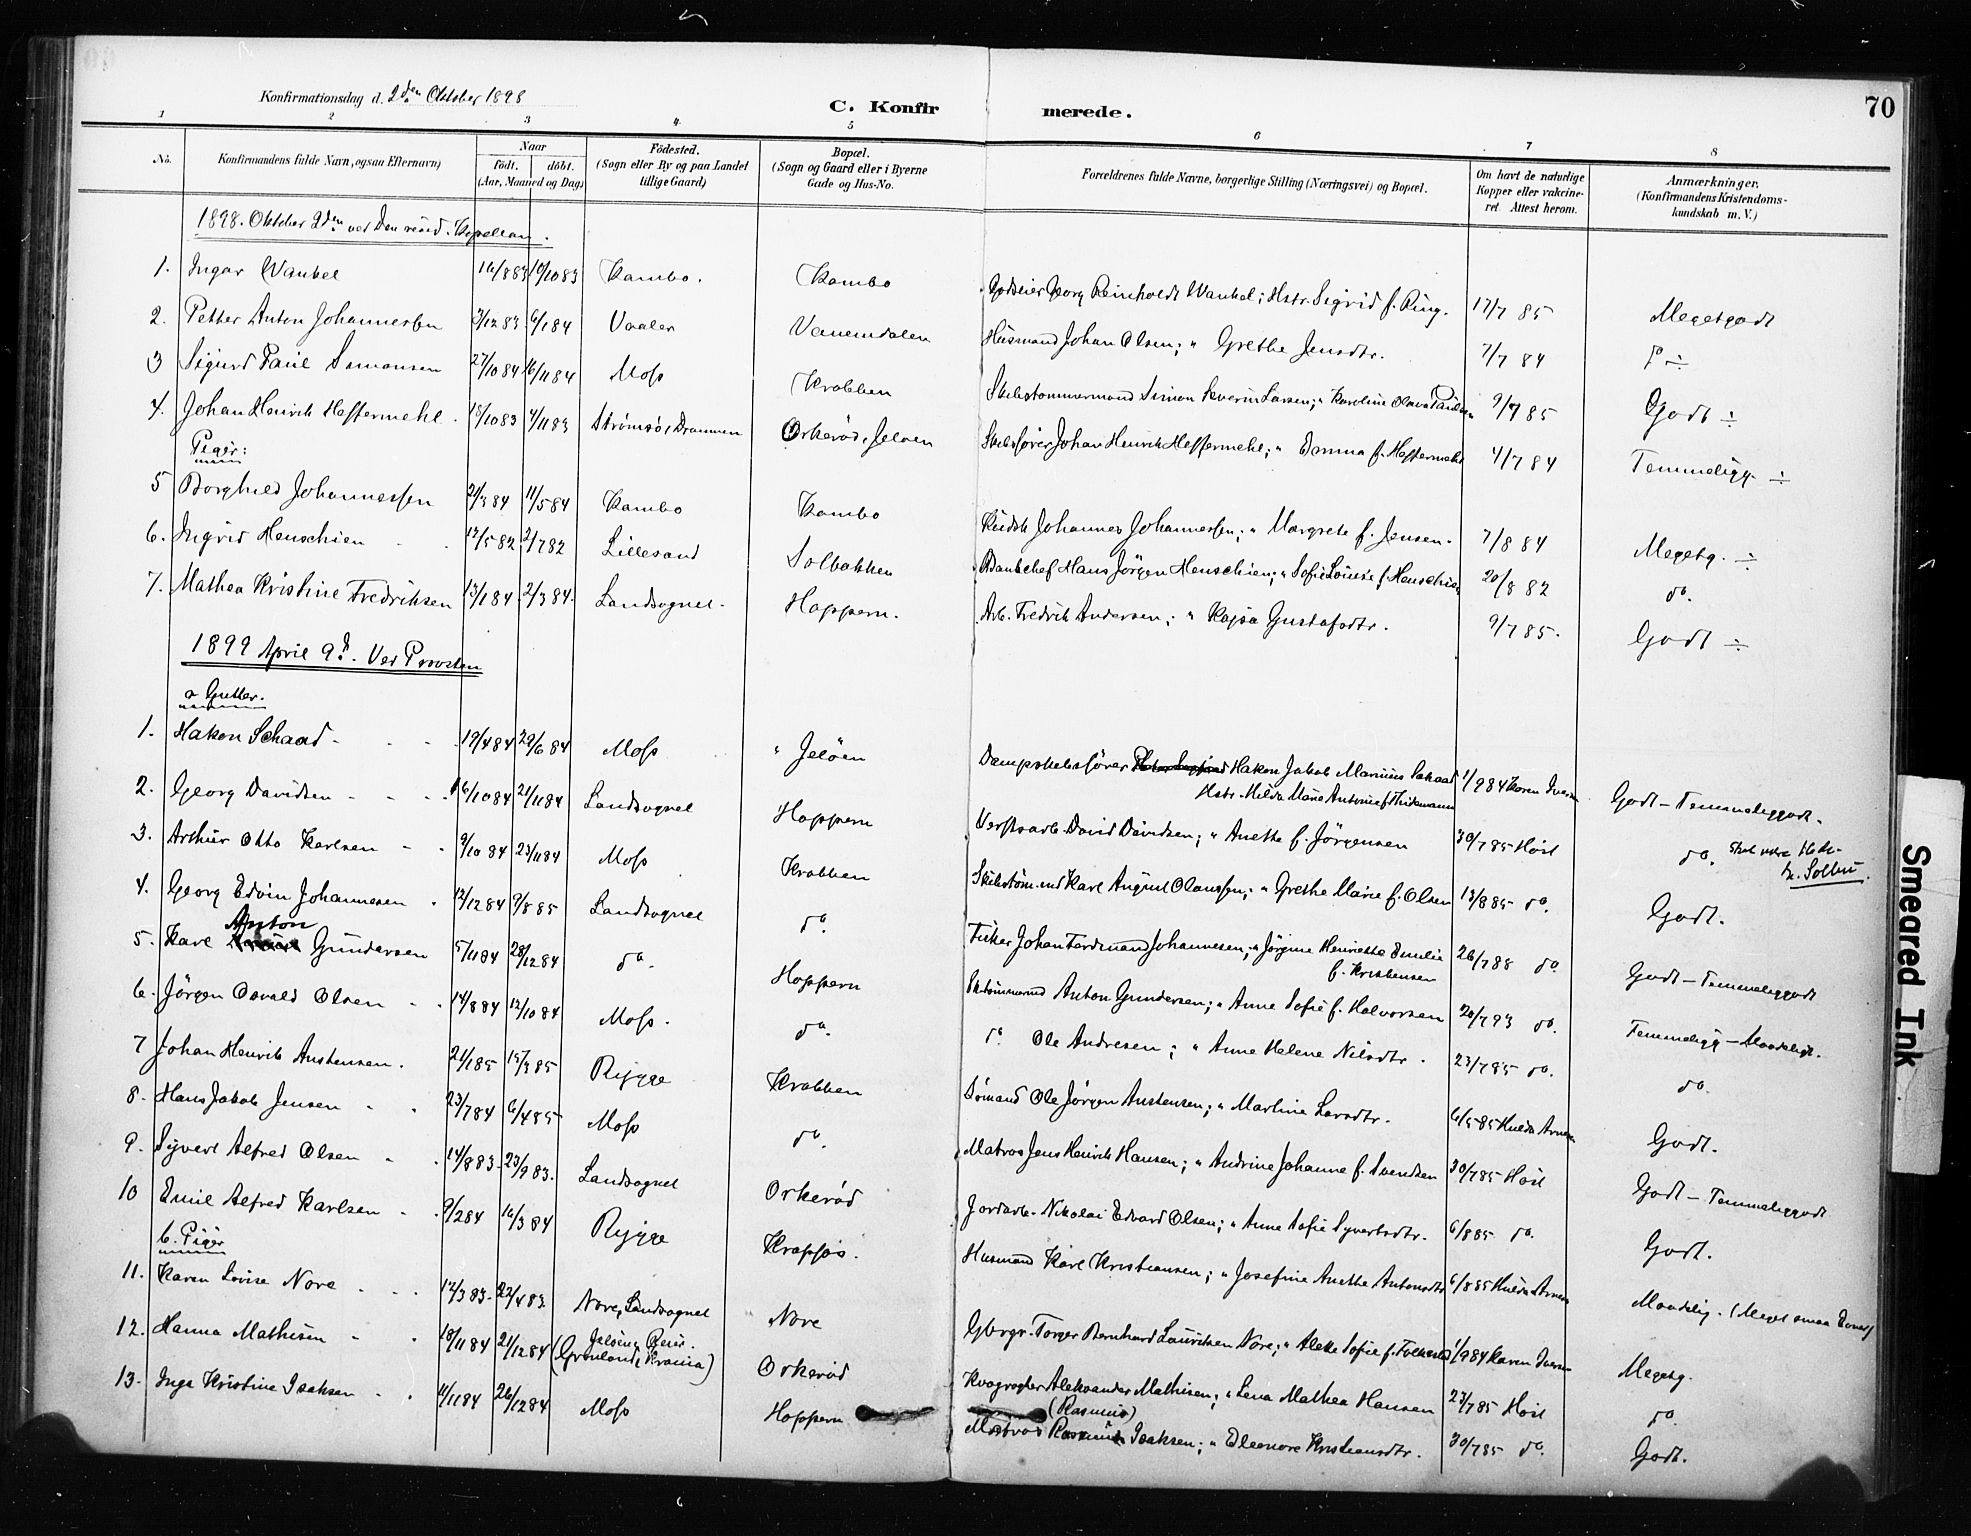 Konfirmationsdag d. 2den Oktober 1898
C. Konfirmerede.
70
1 2 3 4. 5 6 7 8
No. Konfirmandens fulde Navn, ogsaa Efternavn) Naar födt. döbt. (Aar, Maaned og Dag) Födested. (Sogn eller By og paa Landet tillige Gaard) Bopæl. (Sogn og Gaard eller i Byerne Gade og Hus-No. Forældrenes fulde Navne, borgerlige Stilling (Næringsvei) og Bopæl. Om havt de naturlige Kopper eller vakcineret Attest herom. Anmærkninger. (Konfirmandens Kristendomskundskab m. V.)
1898. Oktober 2den ved Den resid. Kapellan.
1. Ingar Wankel 16/8 83 10/10 83 Kambo. Kambo Godseier Georg Reinholdt Wankel; Hstr. Sigrid f. Ring. 17/7 85 Megetgodt
2. Petter Anton Johannessen 3/12 83 6/1 84 Vaaler Vanemdalen Husmand Johan Olsen; " Grethe Jensdtr. 7/7 84 do ÷
3 Sigurd Paul Simonsen 27/10 84 16/11 84 Moss Krabben Skibstømmermand Simon Severin Larsen; " Karoline Olava Paulsen 9/7 85 Godt ÷
4. Johan Henrik Heffermehl. 18/10 83 4/11 83 Strømsö, Drammen Orkerød, Jeløen Skibsfører Johan Henrik Heffermehl; " Emma f. Heffermehl 4/7 84 Temmeligg. ÷
Piger:
5 Borghild Johannessen 21/3 84 11/5 84 Kambo Kambo Kudsk Johannes Johannessen; " Margrete f. Jensen. 7/8 84 Megetg. ÷
6. Ingrid Henschien 17/5 82 2/7 82 Lillesand Solbakken Bankchef Hans Jörgen Henschien; " Sofie Louise f. Henschien 20/8 82 do.
7. Mathea Kristine Fredriksen 13/1 84 2/3 84. Landsognet. Hoppern. Arb. Fredrik Andersen; " Kajsa Gustafsdtr. 9/7 85. Godt ÷
1899 April 9d. Ved Provsten
a Gutter.
1. Hakon Schaad 19/4 84 29/6 84 Moss " Jeløen Dampskibsfører Hakon Jakob Marinius Schaad 1/9 84 Karen Iversen Godt – Temmeliggodt.
Hstr. Hilda Marie Antonie f. Thidemann
2. Georg Davidsen 16/10 84 21/11 84 Landsognet Hoppern Verftsarb. David Davidsen; " Anette f. Jörgensen 30/7 85 Höst do. skal være
3. Arthur Otto Karlsen 9/10 84 23/11 84 Moss Krabben Skibstøm.md Karl August Olaussen; " Grethe Marie f. Olsen 13/8 85 do. Godt.
4. Georg Edvin Johannesen 12/12 84 9/8 85 Landsognet do. Fisker Johan Ferdinand Johannesen; " Jörgine Henriette Emilie f. Kristensen 26/7 88 do. Godt – Temmeliggodt
5. Karl Anton Gundersen 5/11 84 28/12 84 do. Hoppern Sktömmermd Anton Gundersen; " Anne Sofie f. Halvorsen 20/7 93 do. Temmeligg – Maadeligt.
6. Jörgen Osvald Olsen 14/8 84 12/10 84 Moss. do. do. Ole Andresen; " Anne Helene Nilsdtr. 23/7 85 do. do.
7 Johan Henrik Austensen. 21/1 85 15/3 85 Rygge Krabben Sömand Ole Jörgen Austensen; " Martine Larsdtr. 6/5 85 Hulda Arnesen Godt.
8. Hans Jakob Jensen 23/7 84 6/4 85 Moss do. Matros Jens Henrik Hansen; " Andrine Johanne f. Svendsen 30/7 85 Höst Godt – Temmeliggodt
9. Syvert Alfred Olsen 14/8 83. 23/9 83. Landsognet Orkerød Jordarb. Nikolai Edvard Olsen; " Anne Sofie Syvertsdtr. 6/8 85 do. Godt.
10 Emil Alfred Karlsen 9/2 84 16/3 84 Rygge Krapfos. Husmand Karl Kristiansen; " Josefine Anette Antonsdtr 6/8 85 Hulda Arnesen Maadelig. (Meget smaa Evner)
b. Piger
11. Karen Lovise Nore 12/3 83. 22/4 83. Nore, Landsognet Nore Gbrgr. Torger Bernhard Lauritsen Nore; " Alette Sofie f. 1/9 84 Karen Iversen Megetg.
12. Hanna Mathisen 18/11 84 21/12 84 Jeløen, (Grønland, Krania) Orkerød Kvægrøgter Aleksander Mathisen; " Lena Mathea Hansen 23/7 85 Höst do.
13. Inga Kristine Isaksen 11/11 84 26/12 84 Moss Hoppern Matros (Rasmus) Isaksen; " Eleonore Kristiansdtr. 30/7 85 do. Godt.
Smeared Ink